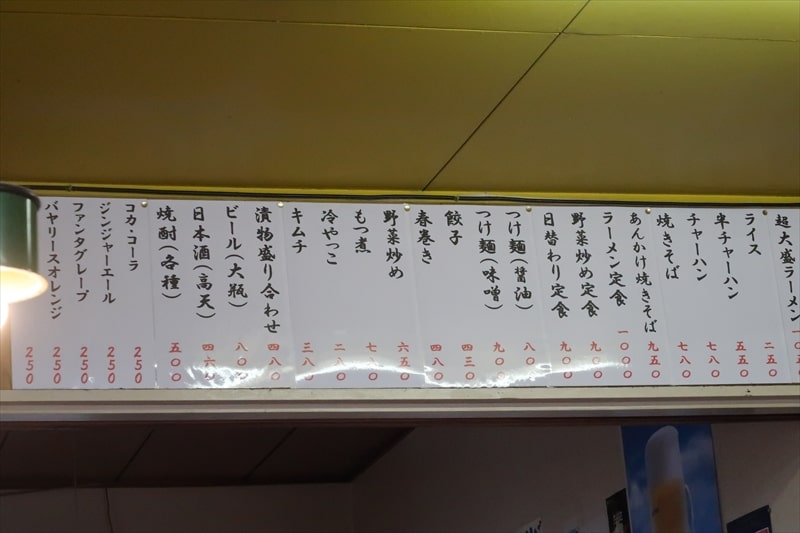 超大盛ラーメン
ライス 二五〇
半チャーハン 五五〇
チャーハン 七八〇
焼きそば 七八〇
あんかけ焼きそば 九五〇
ラーメン定食 一〇〇〇
野菜炒め定食 九〇〇
日替わり定食 九〇〇
つけ麺(醤油) 八〇〇
つけ麺(味噌) 九〇〇
餃子 四三〇
春巻き 四八〇
野菜炒め 六五〇
もつ煮 七八〇
冷やっこ 二八〇
キムチ 三八〇
漬物盛り合わせ 四八〇
ビール(大瓶) 八〇〇
日本酒(高天) 四六〇
焼酎(各種) 五〇〇
コカ・コーラ 250
ジンジャーエール 250
ファンタグレープ 250
バヤリースオレンジ 250